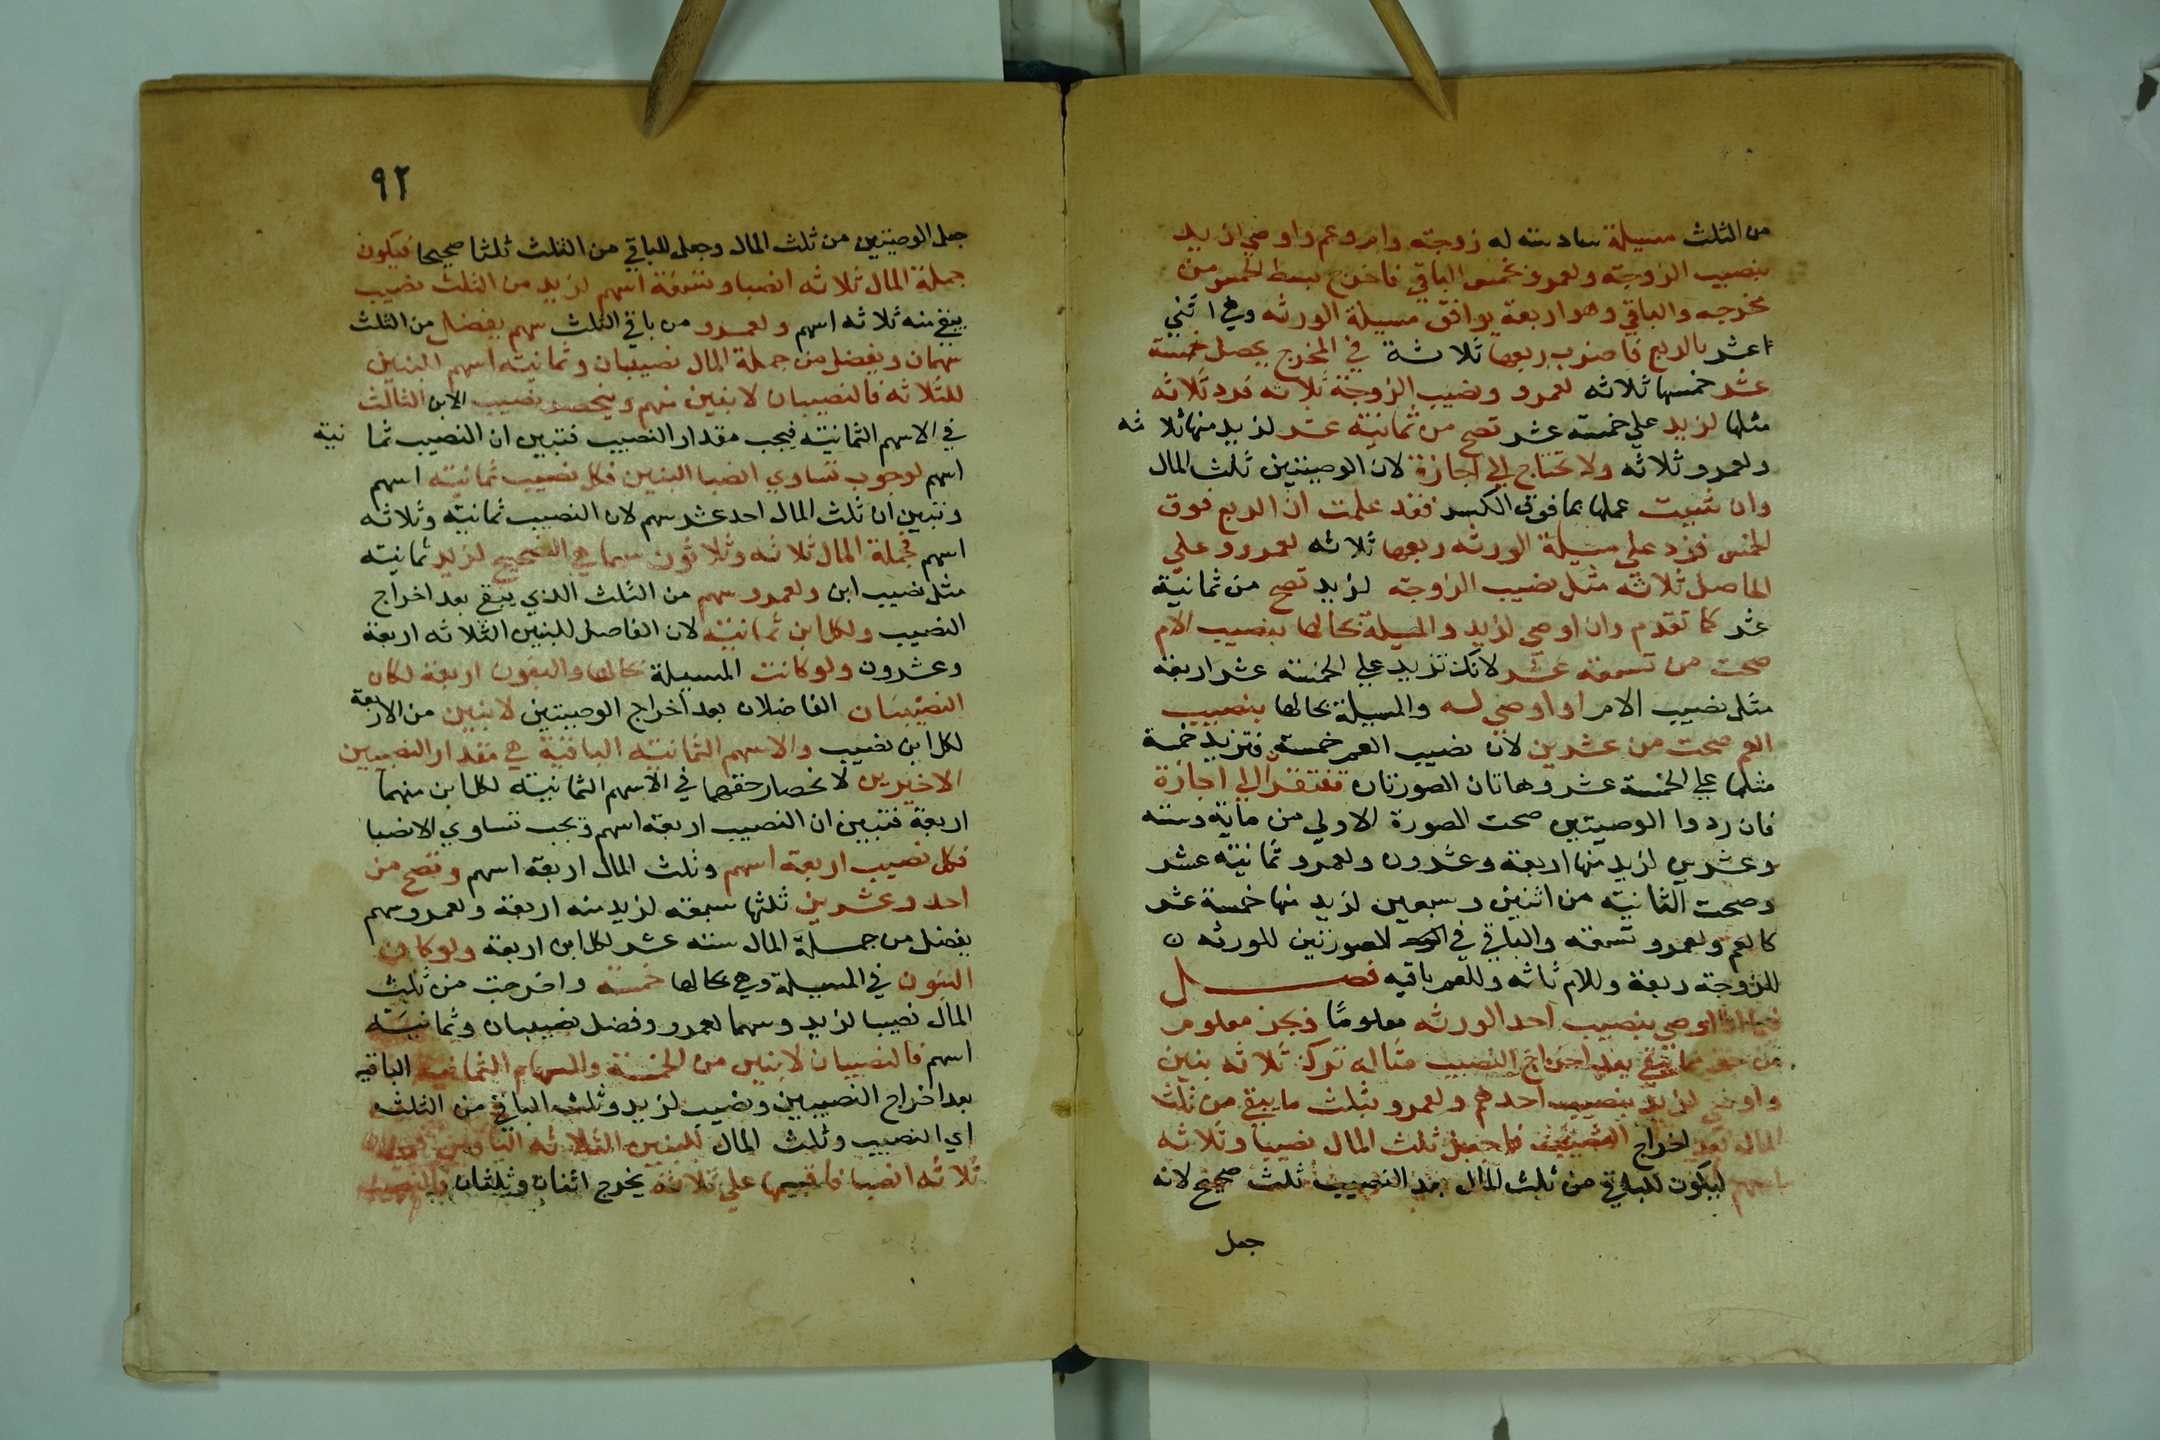 من الثلث مسيلة سادسته له زوجته وام وعم واوصي لزيد
بنصيب الزوجته ولعمرو بخمس الباقي فاخرج بسط الخمس من
مخرجه والباقي وهو اربعة يوافق مسيلة الورثه وهي اثني
اعشر بالربع فاضرب ربعها ثلاثة في المخرج يحصل خمسة
عشر خمسها ثلاثه لعمرو ونصيب الزوجة ثلاثه فزد ثلاثه
مثلها لزيد علي خمسته عشر تصح من ثمانية عشر لزيد منها ثلا ثه
ولعمرو ثلاثه ولا تحتاج الي اجازة لان الوصيتين ثلث المال
وان شيت عملها بما فوق الكسر فقد علمت ان الربع فوق
الخمس فزد علي مسيلة الورثه ربعها ثلاثه لعمرو وعلي
الحاصل ثلاثه مثل نصيب الزوجته لزيد تصح من ثمانية
عشر كما تقدم وان اوصي لزيد والمسيلة بحالها بنصيب الام
صحت من تسعة عشر لانك تزيد علي الخمسة عشر اربعة
مثل نصيب الام او اوصي له والمسيلة بحالها بنصيب
العم صحت من عشرين لان نصيب العم خمسة فتزيد خمسة
مثلها علي الخمسة عشر وهاتان الصورتان تفتقر الي اجازة
فان ردوا الوصيتين صحت الصورة الاولي من ماية وسته
وعشرين لزيد منها اربعة وعشرون ولعمرو ثمانية عشر
وصحت الثانية من اثنين وسبعين لزيد منها خمسة عشر
كالعم ولعمرو تسعه والباقي في الصورتين للورثه ن
للزوجة ربعة وللام ثلثه وللعم باقيه فصل
اوصي بنصيب احد الورثه معلومًا وبجزء معلوم
مما يبقي بعد اخراج النصيب مثاله ترك ثلاثه بنين
واوصي لزيد بنصيب احدهم ولعمرو بثلث ما يبقي من ثلث
المال بعد اخراج النصيب فاجعل ثلث المال نصيبا وثلاثه
اسهم ليكون للباقي من ثلث المال بعد النصيب ثلث صحيح لانه
جعل
٩٢
جعل الوصيتين من ثلث المال وجعل للباقي من الثلث ثلثا صحيحا فيكون
جملة المال ثلاثه انصبا وتسعة اسهم لزيد من الثلث نصيب
يبقي منه ثلاثه اسهم ولعمرو من باقي الثلث سهم يفضل من الثلث
سهمان ويفضل من جملة المال نصيبان وثمانيته اسهم للبنين
للثلاثه فالنصيبان لابنين منهم وينحصر نصيب الابن الثالث
في الاسهم الثمانيته فيجب مقدار النصيب فتبين ان النصيب ثما نيته
اسهم لوجوب تساوي انصبا البنين فكل نصيب ثمانيته اسهم
وتبين ان ثلث المال احد عشر سهم لان النصيب ثمانيته وثلاثه
اسهم فجملة المال ثلاثه وثلاثون سهما هي التصحيح لزيد ثمانيته
مثل نصيب ابن ولعمرو سهم من الثلث الذي يبقي بعد اخراج
النصيب ولكل ابن ثمانيته لان الفاصل للبنين الثلاثه اربعة
وعشرون ولو كانت المسيلة بحالها والبنون اربعة لكان
النصيبان الفاضلان بعد اخراج الوصيتين لابنين من الاربعة
لكل ابن نصيب والاسهم الثمانيته الباقية هي مقدار النصيبين
الاخيرين لانحصار حقهما في الاسهم الثمانيته لكل ابن منهما
اربعة فتبين ان النصيب اربعة اسهم ويجب تساوي الانصبا
فكل نصيب اربعة اسهم وثلث المال اربعة اسهم وتصح من
احد وعشرين ثلثها سبعه لزيد منه اربعة ولعمرو سهم
يفضل من جملة المال سته عشر لكل ابن اربعة ولو كان
البنون في المسيلة وهي بحالها خمسة واخرجت من ثلث
المال نصيبا لزيد وسهما لعمرو وفضل نصيبان وثمانيته
اسهم فالنصيبان لابنين من الخمسة والسهام الثمانية الباقيه
بعد اخراج النصيبين ونصيب لزيد وثلث الباقي من الثلث
اي النصيب وثلث المال للبنين الثلاثه الباقين
ثلاثه انصبا فاقسمها علي ثلاثة يخرج اثنان وثلثان